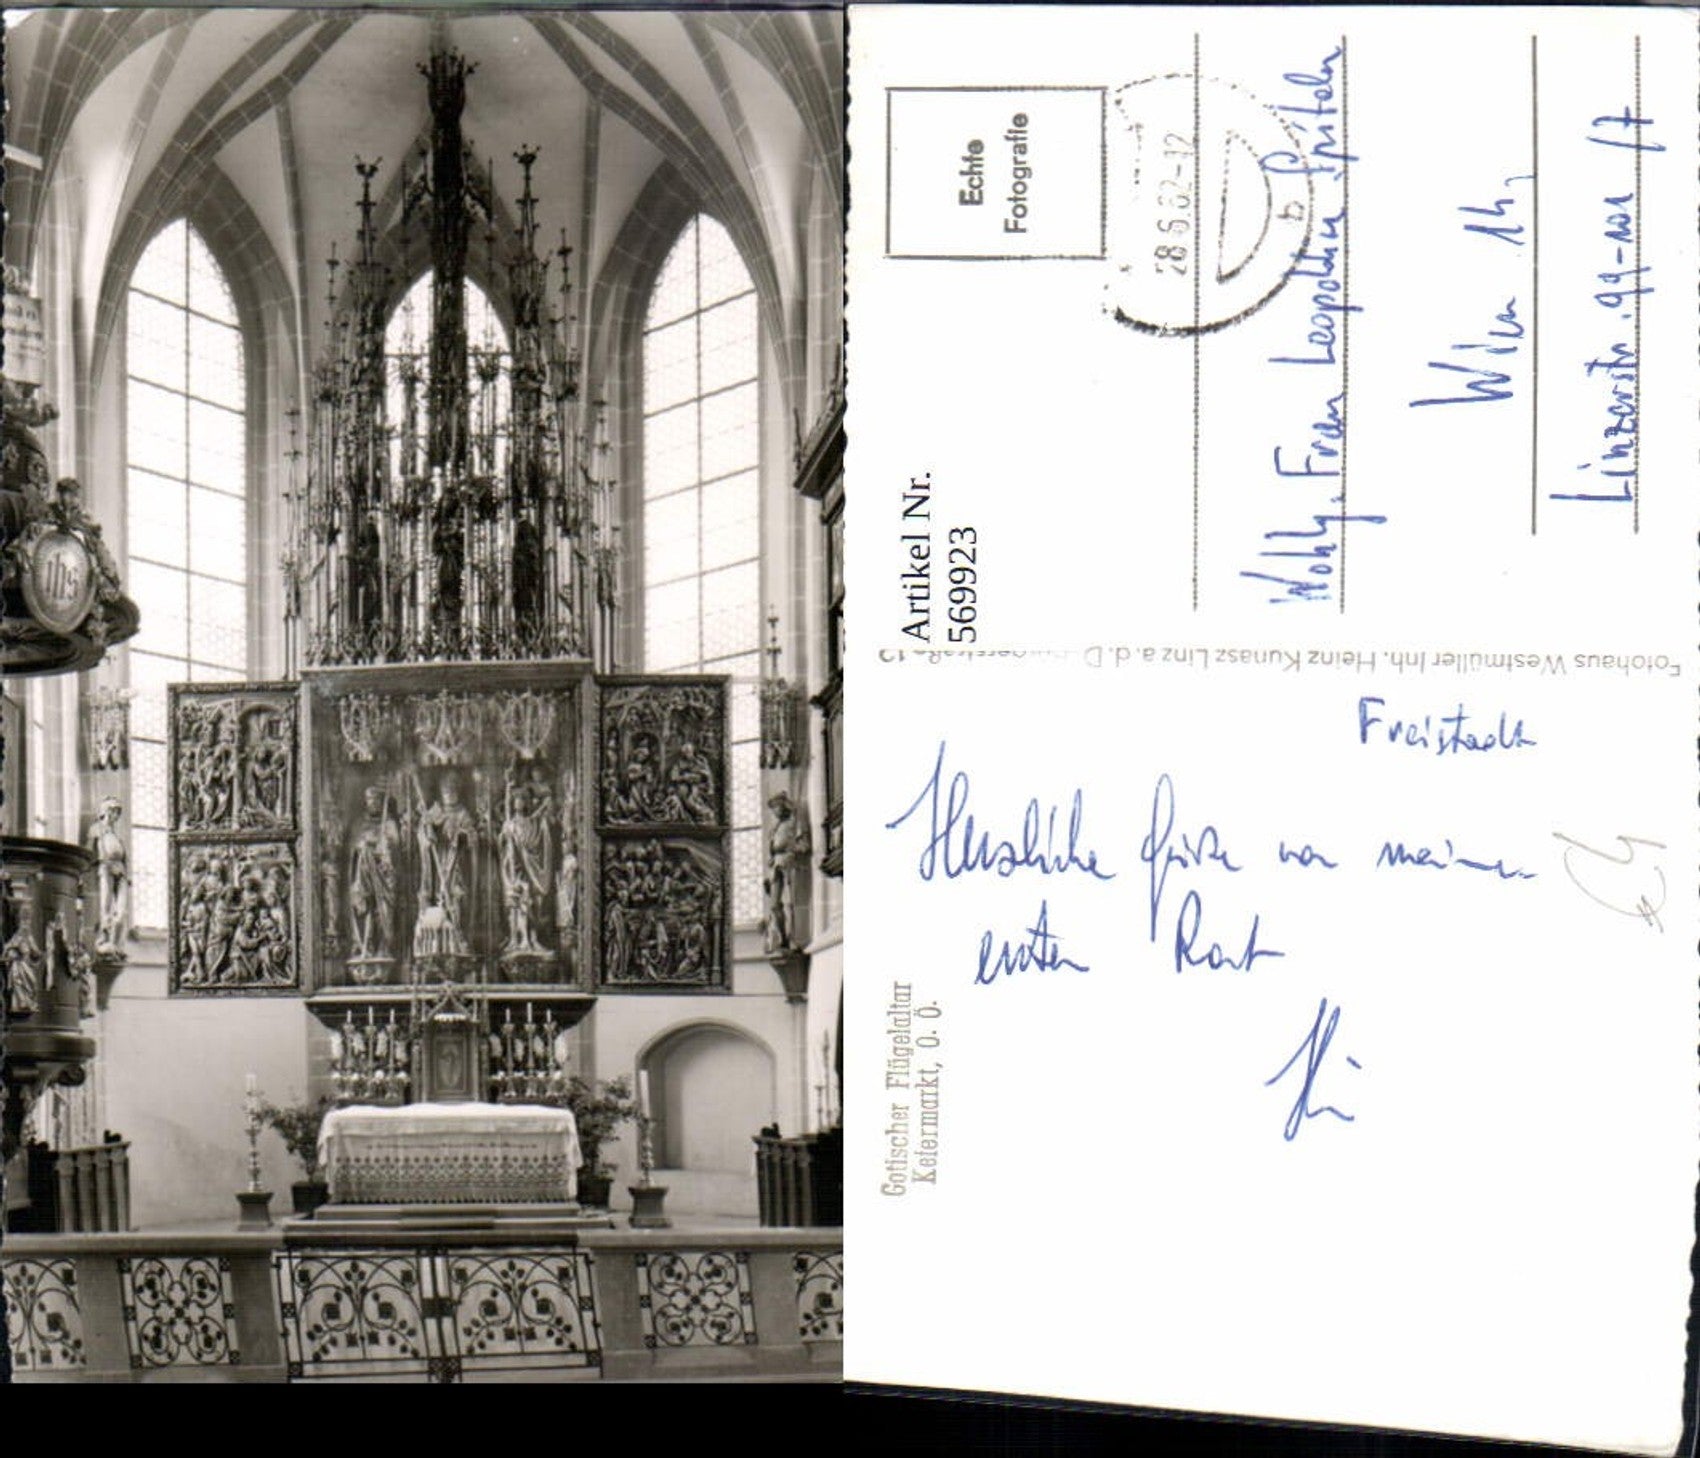 ihs
Artikel Nr.
569923
Echte
Fotografie
28.6.62-12
b
Wohlg. Frau Leopoldine Spitaler
Wien 14,
Linzerstr. 99-101 /7
Fotohaus Westmüller Inh. Heinz Kunasz Linz a. d. D
Freistadt
Herzliche Grüße von meiner
ersten Rast
Gotischer Flügelaltar
Kefermarkt, O. Ö.